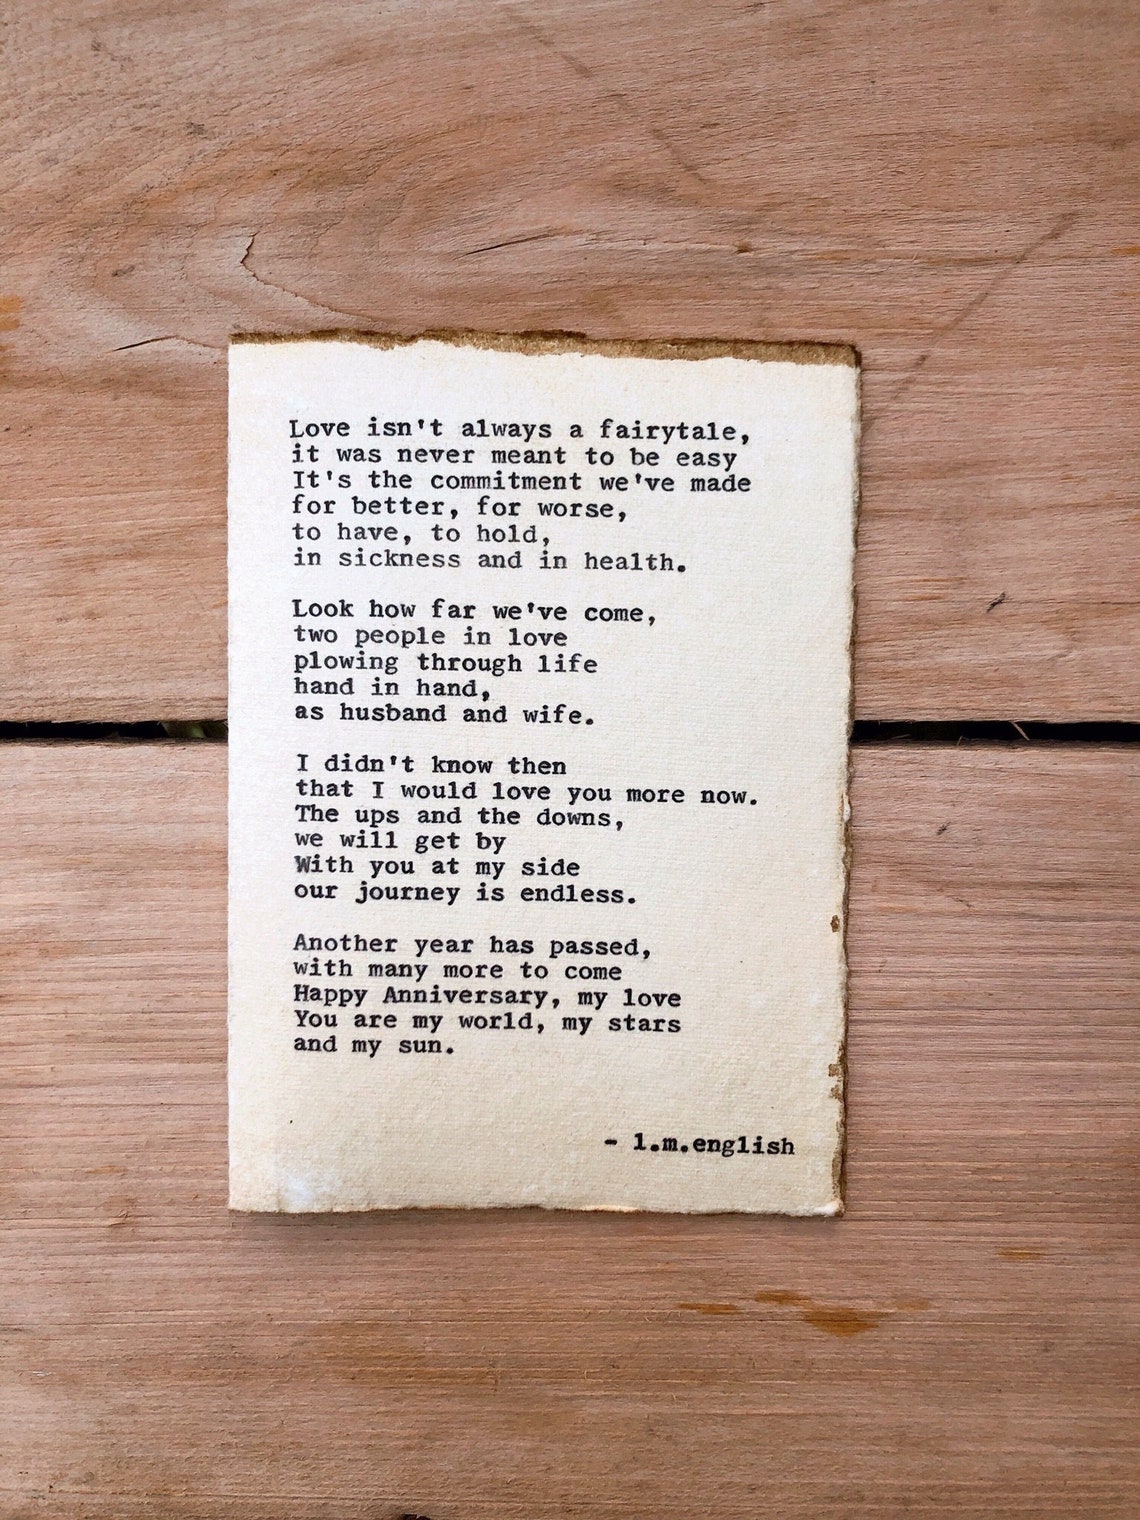 Love isn't always a fairytale,
it was never meant to be easy
It's the commitment we've made
for better, for worse,
to have, to hold,
in sickness and in health.
Look how far we've come,
two people in love
plowing through life
hand in hand,
as husband and wife.
I didn't know then
that I would love you more now.
The ups and the downs,
we will get by
With you at my side
our journey is endless.
Another year has passed,
with many more to come
Happy Anniversary, my love
You are my world, my stars
and my sun.
- l.m.english